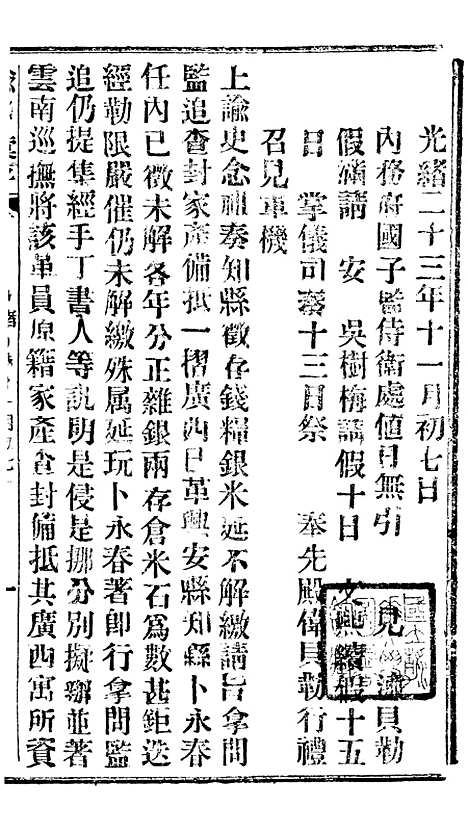 光緒二十三年十一月初七日
內務府國子監侍衛處値日無引 見 貝勒
假續請 安 吳樹梅請假十日 續假十五
日 掌儀司奏十三日祭 奉先殿偉貝勒行禮
召見軍機
上諭史念祖奏知縣徵存錢糧銀米延不解繳請旨拿問
監追查封家產備抵一摺廣西已革興安縣知縣卜永春
任內已徵未解各年分正雜銀兩存倉米石爲數甚鉅迭
經勒限嚴催仍未解繳殊属延玩卜永春著卽行拿問監
追仍提集經手丁書人等訊明是侵是挪分別擬辦並著
雲南巡撫將該革員原籍家產查封備抵其廣西寓所資